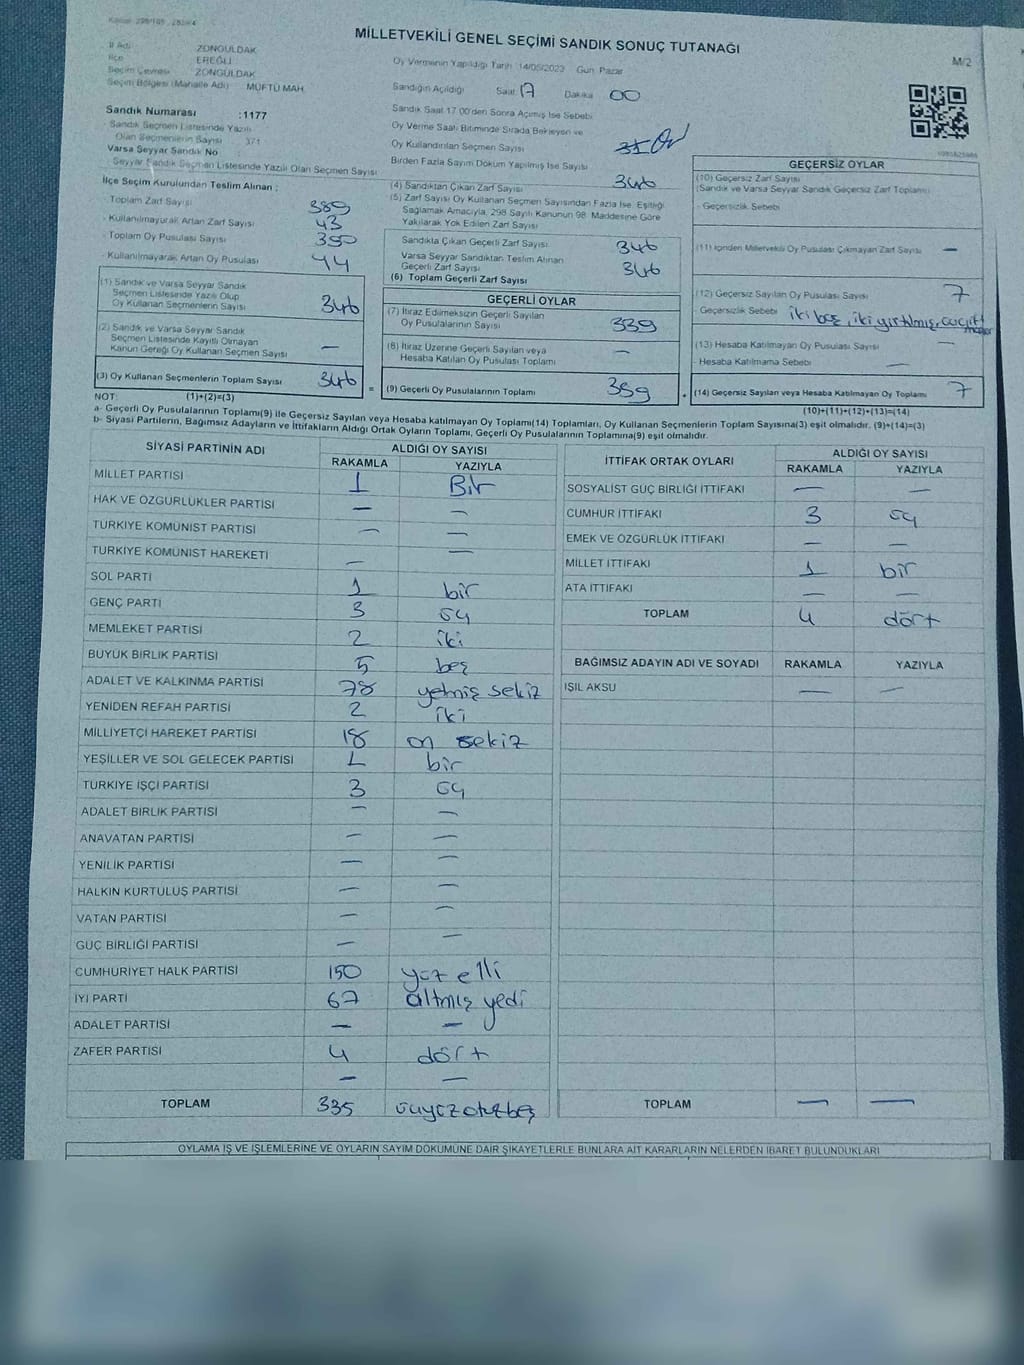 MİLLETVEKİLİ GENEL SEÇİMİ SANDIK SONUÇ TUTANAĞI
M/2
İl Adı : ZONGULDAK
İlçe : EREĞLİ
Seçim Çevresi : ZONGULDAK
Seçim Bölgesi (Mahalle Adı) : MÜFTÜ MAH.
Oy Vermenin Yapıldığı Tarih :14/05/2023 Gün: Pazar
Sandığın Açıldığı Saat 17 Dakika 00
Sandık Saat 17.00'den Sonra Açılmış İse Sebebi
Oy Verme Saati Bitiminde Sırada Bekleyen ve
Oy Kullandırılan Seçmen Sayısı
Birden Fazla Sayım Döküm Yapılmış İse Sayısı
Sandık Numarası :1177
Sandık Seçmen Listesinde Yazılı
Olan Seçmenlerin Sayısı : 371
Varsa Seyyar Sandık No
Seyyar Sandık Seçmen Listesinde Yazılı Olan Seçmen Sayısı
İlçe Seçim Kurulundan Teslim Alınan ;
- Toplam Zarf Sayısı 389
- Kullanılmayarak Artan Zarf Sayısı 43
- Toplam Oy Pusulası Sayısı 390
- Kullanılmayarak Artan Oy Pusulası 44
(1) Sandık ve Varsa Seyyar Sandık
Seçmen Listesinde Yazılı Olup
Oy Kullanan Seçmenlerin Sayısı 346
(2) Sandık ve Varsa Seyyar Sandık
Seçmen Listesinde Kayıtlı Olmayan
Kanun Gereği Oy Kullanan Seçmen Sayısı —
(3) Oy Kullanan Seçmenlerin Toplam Sayısı 346
(1)+(2)=(3)
(4) Sandıktan Çıkan Zarf Sayısı 346
(5) Zarf Sayısı Oy Kullanan Seçmen Sayısından Fazla İse, Eşitliği
Sağlamak Amacıyla, 298 Sayılı Kanunun 98. Maddesine Göre
Yakılarak Yok Edilen Zarf Sayısı
Sandıkta Çıkan Geçerli Zarf Sayısı 346
Varsa Seyyar Sandıktan Teslim Alınan
Geçerli Zarf Sayısı
(6) Toplam Geçerli Zarf Sayısı 346
GEÇERLİ OYLAR
(7) İtiraz Edilmeksizin Geçerli Sayılan
Oy Pusulalarının Sayısı 339
(8) İtiraz Üzerine Geçerli Sayılan veya
Hesaba Katılan Oy Pusulası Toplamı —
= (9) Geçerli Oy Pusulalarının Toplamı 339
GEÇERSİZ OYLAR
(10) Geçersiz Zarf Sayısı
(Sandık ve Varsa Seyyar Sandık Geçersiz Zarf Toplamı)
- Geçersizlik Sebebi
(11) İçinden Milletvekili Oy Pusulası Çıkmayan Zarf Sayısı —
(12) Geçersiz Sayılan Oy Pusulası Sayısı 7
- Geçersizlik Sebebi iki boş, iki yırtılmış, üç çift
(13) Hesaba Katılmayan Oy Pusulası Sayısı —
- Hesaba Katılmama Sebebi —
+ (14) Geçersiz Sayılan veya Hesaba Katılmayan Oy Toplamı 7
(10)+(11)+(12)+(13)=(14)
NOT:
a- Geçerli Oy Pusulalarının Toplamı(9) ile Geçersiz Sayılan veya Hesaba katılmayan Oy Toplamı(14) Toplamları, Oy Kullanan Seçmenlerin Toplam Sayısına(3) eşit olmalıdır. (9)+(14)=(3)
b- Siyasi Partilerin, Bağımsız Adayların ve İttifakların Aldığı Ortak Oyların Toplamı, Geçerli Oy Pusulalarının Toplamına(9) eşit olmalıdır.
SİYASİ PARTİNİN ADI ALDIĞI OY SAYISI
RAKAMLA YAZIYLA
MİLLET PARTİSİ 1 Bir
HAK VE ÖZGÜRLÜKLER PARTİSİ — —
TÜRKİYE KOMÜNİST PARTİSİ — —
TÜRKİYE KOMÜNİST HAREKETİ — —
SOL PARTİ 1 bir
GENÇ PARTİ 3 üç
MEMLEKET PARTİSİ 2 iki
BÜYÜK BİRLİK PARTİSİ 5 beş
ADALET VE KALKINMA PARTİSİ 78 yetmiş sekiz
YENİDEN REFAH PARTİSİ 2 iki
MİLLİYETÇİ HAREKET PARTİSİ 18 on sekiz
YEŞİLLER VE SOL GELECEK PARTİSİ 1 bir
TÜRKİYE İŞÇİ PARTİSİ 3 üç
ADALET BİRLİK PARTİSİ — —
ANAVATAN PARTİSİ — —
YENİLİK PARTİSİ — —
HALKIN KURTULUŞ PARTİSİ — —
VATAN PARTİSİ — —
GÜÇ BİRLİĞİ PARTİSİ — —
CUMHURİYET HALK PARTİSİ 150 yüz elli
İYİ PARTİ 67 altmış yedi
ADALET PARTİSİ — —
ZAFER PARTİSİ 4 dört
— —
TOPLAM 335 üçyüzotuzbeş
İTTİFAK ORTAK OYLARI ALDIĞI OY SAYISI
RAKAMLA YAZIYLA
SOSYALİST GÜÇ BİRLİĞİ İTTİFAKI — —
CUMHUR İTTİFAKI 3 üç
EMEK VE ÖZGÜRLÜK İTTİFAKI — —
MİLLET İTTİFAKI 1 bir
ATA İTTİFAKI — —
TOPLAM 4 dört
BAĞIMSIZ ADAYIN ADI VE SOYADI RAKAMLA YAZIYLA
IŞIL AKSU — —
TOPLAM — —
OYLAMA İŞ VE İŞLEMLERİNE VE OYLARIN SAYIM DÖKÜMÜNE DAİR ŞİKAYETLERLE BUNLARA AİT KARARLARIN NELERDEN İBARET BULUNDUKLARI